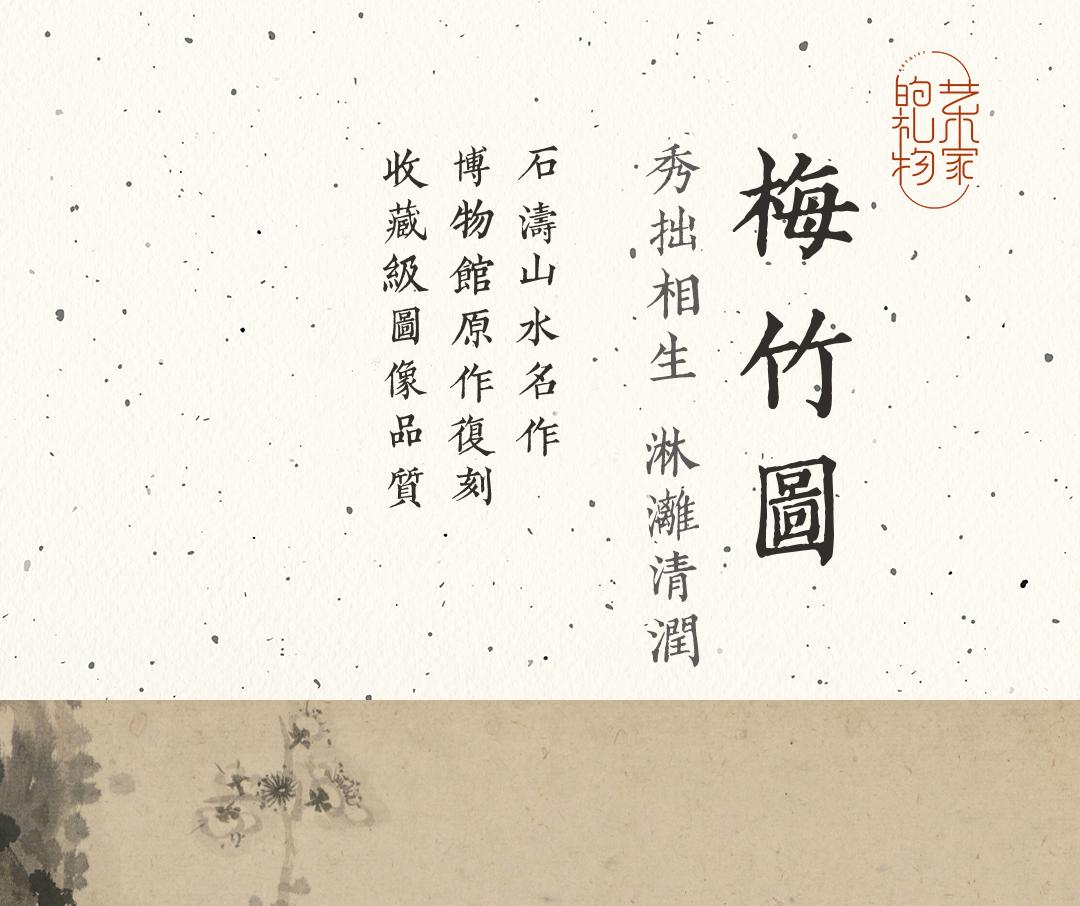 艺术家的礼物
梅竹圖
秀拙相生 淋灕清潤
石濤山水名作
博物館原作復刻
收藏級圖像品質